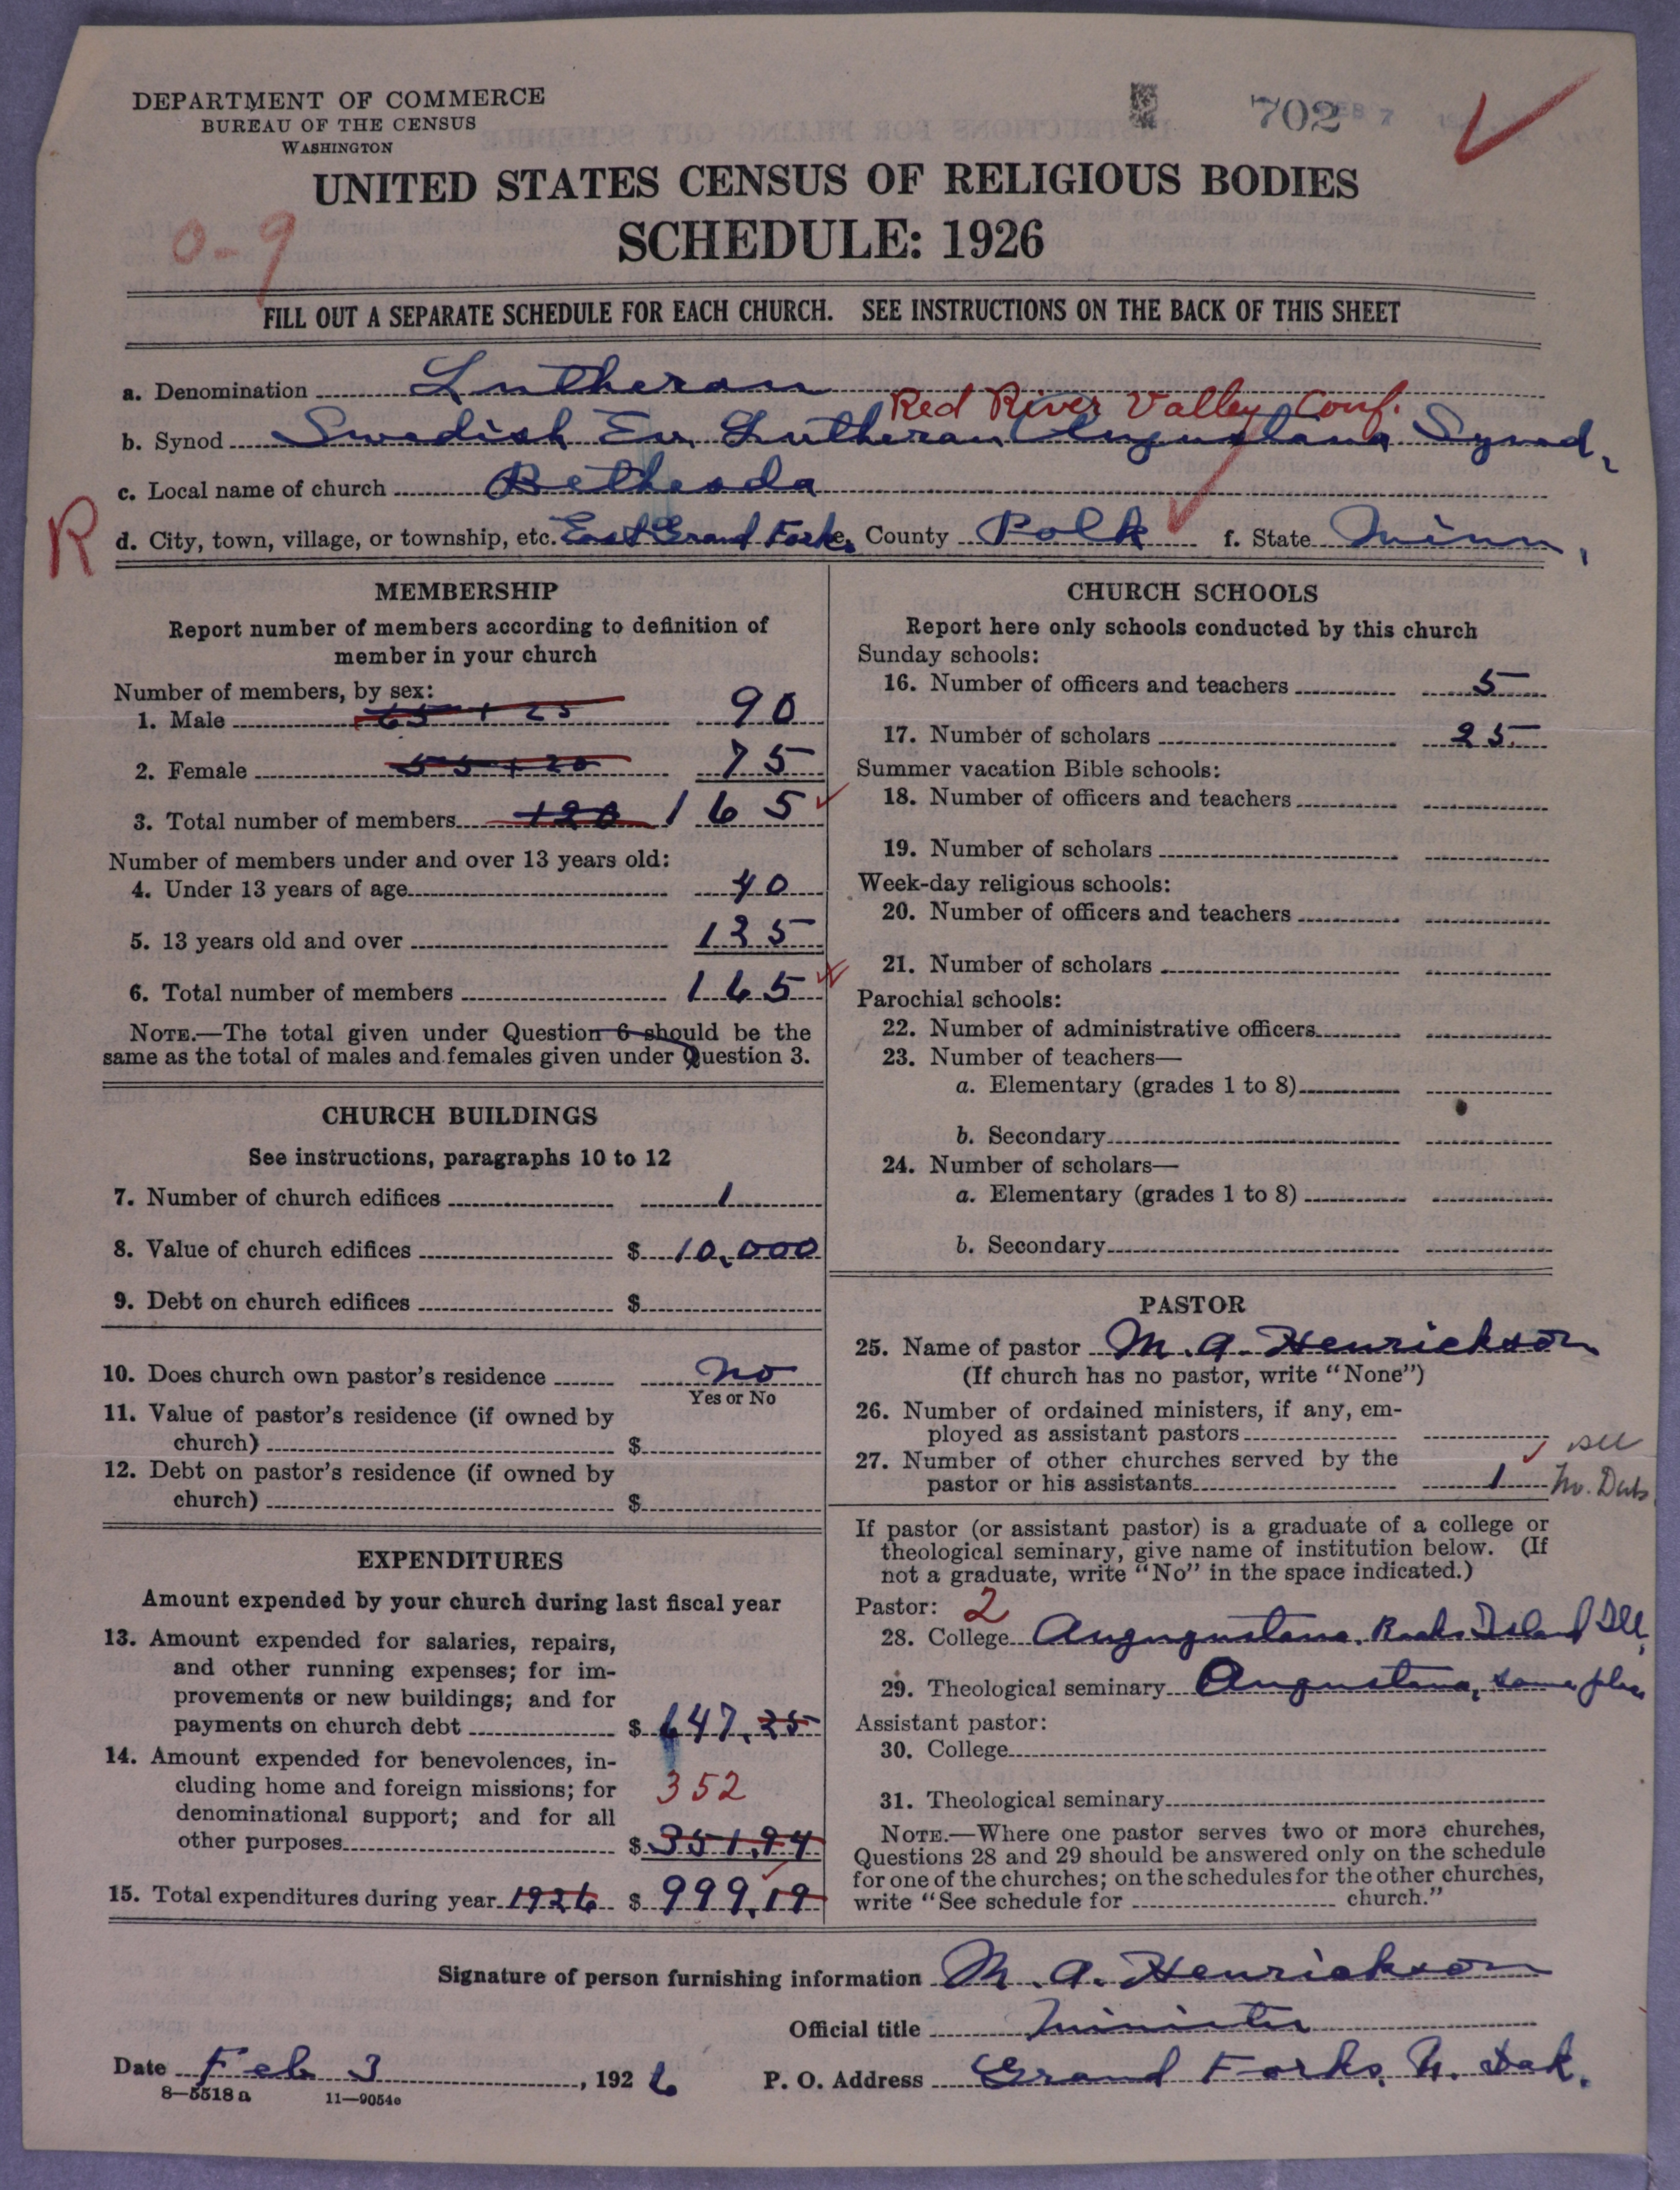 DEPARTMENT OF COMMERCE
BUREAU OF THE CENSUS
WASHINGTON
702
UNITED STATES CENSUS OF RELIGIOUS BODIES
SCHEDULE: 1926
0-9
FILL OUT A SEPARATE SCHEDULE FOR EACH CHURCH. SEE INSTRUCTIONS ON THE BACK OF THIS SHEET
a. Denomination Lutheran
Red River Valley Conf.
b. Synod Swedish Ev. Lutheran Augustana Synod,
c. Local name of church Bethesda
R
d. City, town, village, or township, etc. East Grand Forks e. County Polk f. State Minn.
MEMBERSHIP
Report number of members according to definition of
member in your church
Number of members, by sex:
1. Male 65 + 25 90
2. Female 55 + 20 75
3. Total number of members 120 165
Number of members under and over 13 years old:
4. Under 13 years of age 40
5. 13 years old and over 125
6. Total number of members 165
NOTE.—The total given under Question 6 should be the
same as the total of males and females given under Question 3.
CHURCH BUILDINGS
See instructions, paragraphs 10 to 12
7. Number of church edifices 1
8. Value of church edifices $ 10,000
9. Debt on church edifices $
10. Does church own pastor's residence No
Yes or No
11. Value of pastor's residence (if owned by
church) $
12. Debt on pastor's residence (if owned by
church) $
EXPENDITURES
Amount expended by your church during last fiscal year
13. Amount expended for salaries, repairs,
and other running expenses; for im-
provements or new buildings; and for
payments on church debt $ 647.25
14. Amount expended for benevolences, in-
cluding home and foreign missions; for
352
denominational support; and for all
other purposes $ 351.94
15. Total expenditures during year 1926 $ 999.19
CHURCH SCHOOLS
Report here only schools conducted by this church
Sunday schools:
16. Number of officers and teachers 5
17. Number of scholars 25
Summer vacation Bible schools:
18. Number of officers and teachers
19. Number of scholars
Week-day religious schools:
20. Number of officers and teachers
21. Number of scholars
Parochial schools:
22. Number of administrative officers
23. Number of teachers—
a. Elementary (grades 1 to 8)
b. Secondary
24. Number of scholars—
a. Elementary (grades 1 to 8)
b. Secondary
PASTOR
25. Name of pastor M. A. Henrickson
(If church has no pastor, write "None")
26. Number of ordained ministers, if any, em-
ployed as assistant pastors
27. Number of other churches served by the
see
pastor or his assistants 1
If pastor (or assistant pastor) is a graduate of a college or
theological seminary, give name of institution below. (If
not a graduate, write "No" in the space indicated.)
Pastor: 2
28. College Augugustana, Rock Island Ill,
29. Theological seminary Augustana, same place
Assistant pastor:
30. College
31. Theological seminary
NOTE.—Where one pastor serves two or more churches,
Questions 28 and 29 should be answered only on the schedule
for one of the churches; on the schedules for the other churches,
write "See schedule for church."
Signature of person furnishing information M. A. Henrickson
Official title Minister
Date Feb 3, 1926 P. O. Address Grand Forks, N. Dak.
8—5518 a 11—9054e